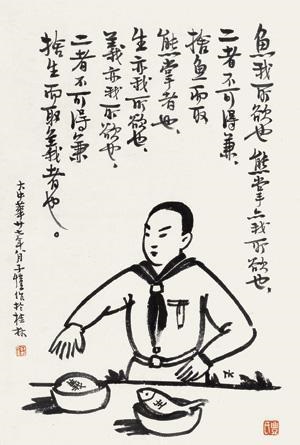 魚我所欲也、熊掌亦我所欲也、
二者不可得兼、
捨魚而取
熊掌者也、
生亦我所欲也、
義亦我所欲也、
二者不可得兼
捨生而取義者也。
大中華廿七年八月子愷作於桂林
義
生